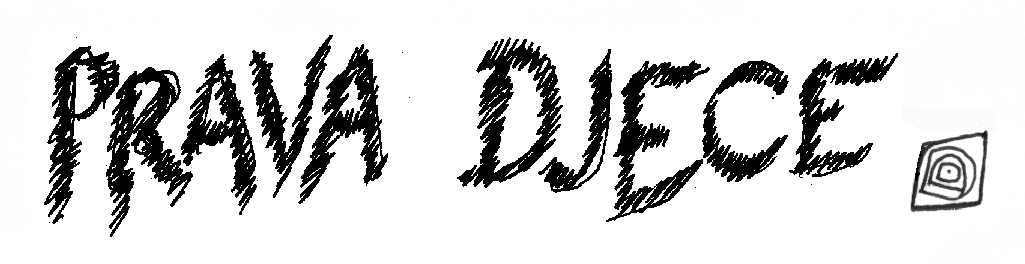 PRAVA DJECE